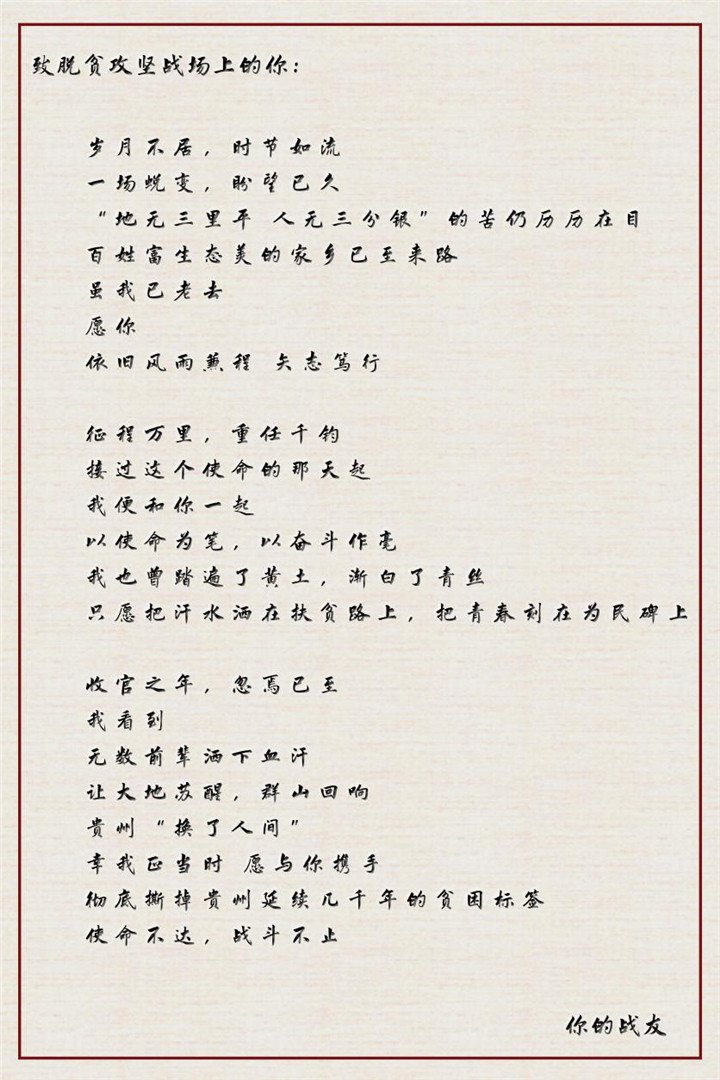 致脱贫攻坚战场上的你：
岁月不居，时节如流
一场蜕变，盼望已久
“地无三里平 人无三分银”的苦仍历历在目
百姓富生态美的家乡已至来路
虽我已老去
愿你
依旧风雨兼程 矢志笃行
征程万里，重任千钧
接过这个使命的那天起
我便和你一起
以使命为笔，以奋斗作毫
我也曾踏遍了黄土，渐白了青丝
只愿把汗水洒在扶贫路上，把青春刻在为民碑上
收官之年，忽焉已至
我看到
无数前辈洒下血汗
让大地苏醒，群山回响
贵州“换了人间”
幸我正当时 愿与你携手
彻底撕掉贵州延续几千年的贫困标签
使命不达，战斗不止
你的战友